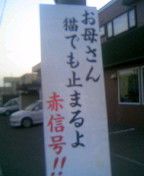 お母さん
猫でも止まるよ
赤信号!!